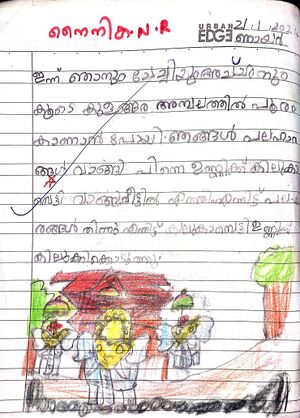 നൈനിക.N.R
URBAN EDGE 21.1.2024
ഞായർ
ഇന്ന് ഞാനും ചേച്ചിയും അച്ചനും
കൂടെ കുളങ്ങര അമ്പലത്തിൽ പൂരം
കാണാൻ പോയി ഞങ്ങൾ പലഹാര
ങ്ങൾ വാങ്ങി പിന്നെ ഉണ്ണിക്ക് കിലുകി
മ്പെട്ടി വാങ്ങി വീട്ടിൽ എത്തി എന്നിട്ട് പലഹാ
രങ്ങൾ തിന്നു എന്നിട്ട് കിലുകാംപെട്ടി ഉണ്ണിക്ക്
കിലുക്കികൊടുത്തു.